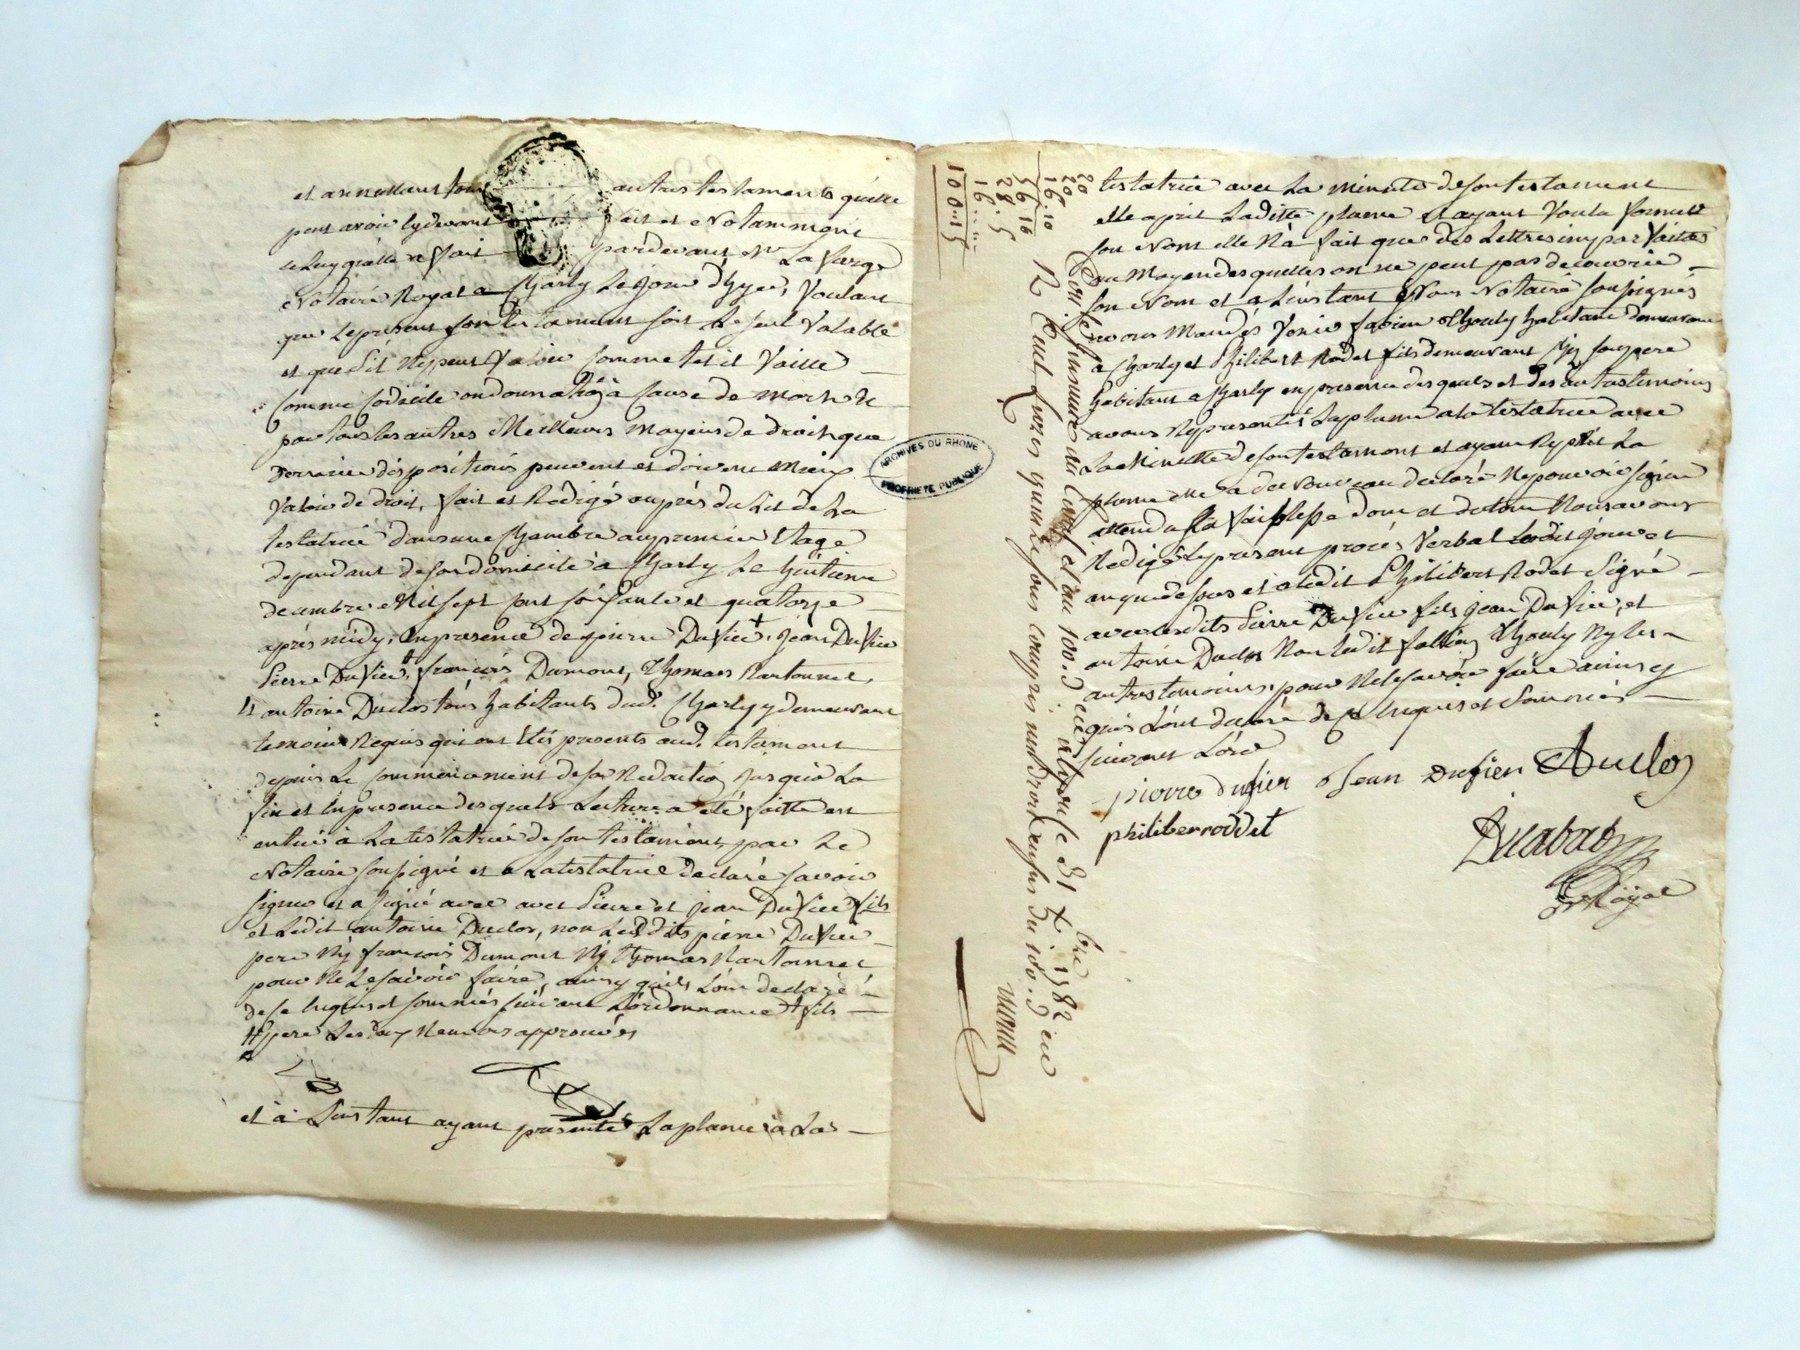 et annullant tous autres testaments qu'elle
peut avoir cy devant fait et Notamment
celuy quelle a fait pardevant Me La farge
Notaire Royal a Charly Le jour d'hyer, Voulant
que le present son testament soit Le seul Valable
et que s'il Ne peut Valoir Comme tel il Vaille
comme Codicile ou donnation à Cause de mort et
par tous les autres Meilleurs moyens de droit que
derniere dispositions peuvent et doivent mieux
Valoir de droit, fait et Redigé auprés du Lit de La
testatrice dans une Chambre au premier Etage
dependant de son domicile à Charly Le huitieme
decembre Mil sept cent soixante et quatorze
aprés midy, en presence de pierre Duvier + jean Duvier
pierre Duvier, + françois Dumont, Thomas Nantonnet
antoine Duclos tous habitants dud. Charly y demeurant
temoins Requis qui ont Etés presents aud. testament
depuis Le Commencement de sa Redaction jusqu'a La
fin et en presence desquels Lecture a été faitte en
entier à La testatrice de son testament par Le
Notaire soussigné et a La testatrice declaré savoir
signer et a signé avec pierre et jean Duvier fils
et Ledit antoine Duclos, non Lesdits pierre Duvier
pere Ny françois Dumont Ny thomas Nantonnet
pour Ne Le savoir faire, ainsy quils L'ont declaré
de ce Enquis et sommés suivant L'ordonnance + fils
# pere Les deux Renvois approuvés
et à L'instant ayant presenté La plume à La
ARCHIVES DU RHONE
PROPRIETE PUBLIQUE
testatrice avec La minute de son testament
elle a pris Laditte plume et ayant Voulu former
son Nom elle N'a fait que des Lettres imparfaites
au Moyen desquelles on ne peut pas decouvrir
son Nom et a L'instant Nous Notaire soussigné
avons Mandés Venir fabien Thouly habitant demeurant
a Charly et Philibert Rodet fils demeurant Chez son pere
habitant a Charly en presence desquels et des autres temoins
avons Representé La plume a la testatrice avec
La Minutte de son testament et ayant Repris La
plume elle a de nouveau declaré Ne pouvoir signer
attendu sa faiblesse dont et du tout Nous avons
Redigé Le present procés Verbal Ledit jour et
an que dessus et a Ledit Philibert Rodet signé
avec Lesdits Pierre Duvier fils jean Duvier, et
antoine Duclos Non Ledit fabien Thouly Ny Les
autres temoins, pour Ne Le savoir faire ainsy
quils L'ont declaré de ce Enquis et sommés
suivant L'ord
pierre duvier Jean duvier Duclos
philiber roddet
Nre Royal
20
20
16. 10
56 16
28. 5
16..
100. 15